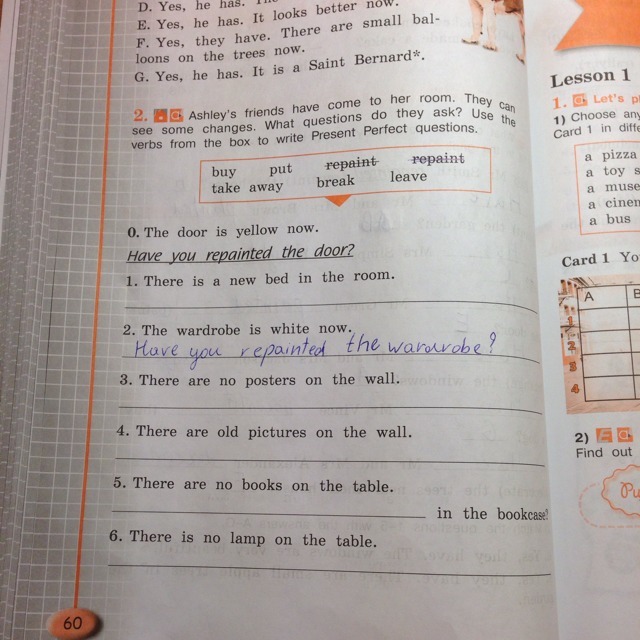 D. Yes, he has.
E. Yes, he has. It looks better now.
F. Yes, they have. There are small bal-
loons on the trees now.
G. Yes, he has. It is a Saint Bernard*.
2. Ashley's friends have come to her room. They can
see some changes. What questions do they ask? Use the
verbs from the box to write Present Perfect questions.
buy put repaint repaint
take away break leave
0. The door is yellow now.
Have you repainted the door?
1. There is a new bed in the room.
2. The wardrobe is white now.
Have you repainted the wardrobe?
3. There are no posters on the wall.
4. There are old pictures on the wall.
5. There are no books on the table.
in the bookcase?
6. There is no lamp on the table.
60
Lesson 1
1. Let's
1) Choose any
Card 1 in
a pizza
a toy
a
a
a bus
Card 1
A
2
3
4
2)
Find out